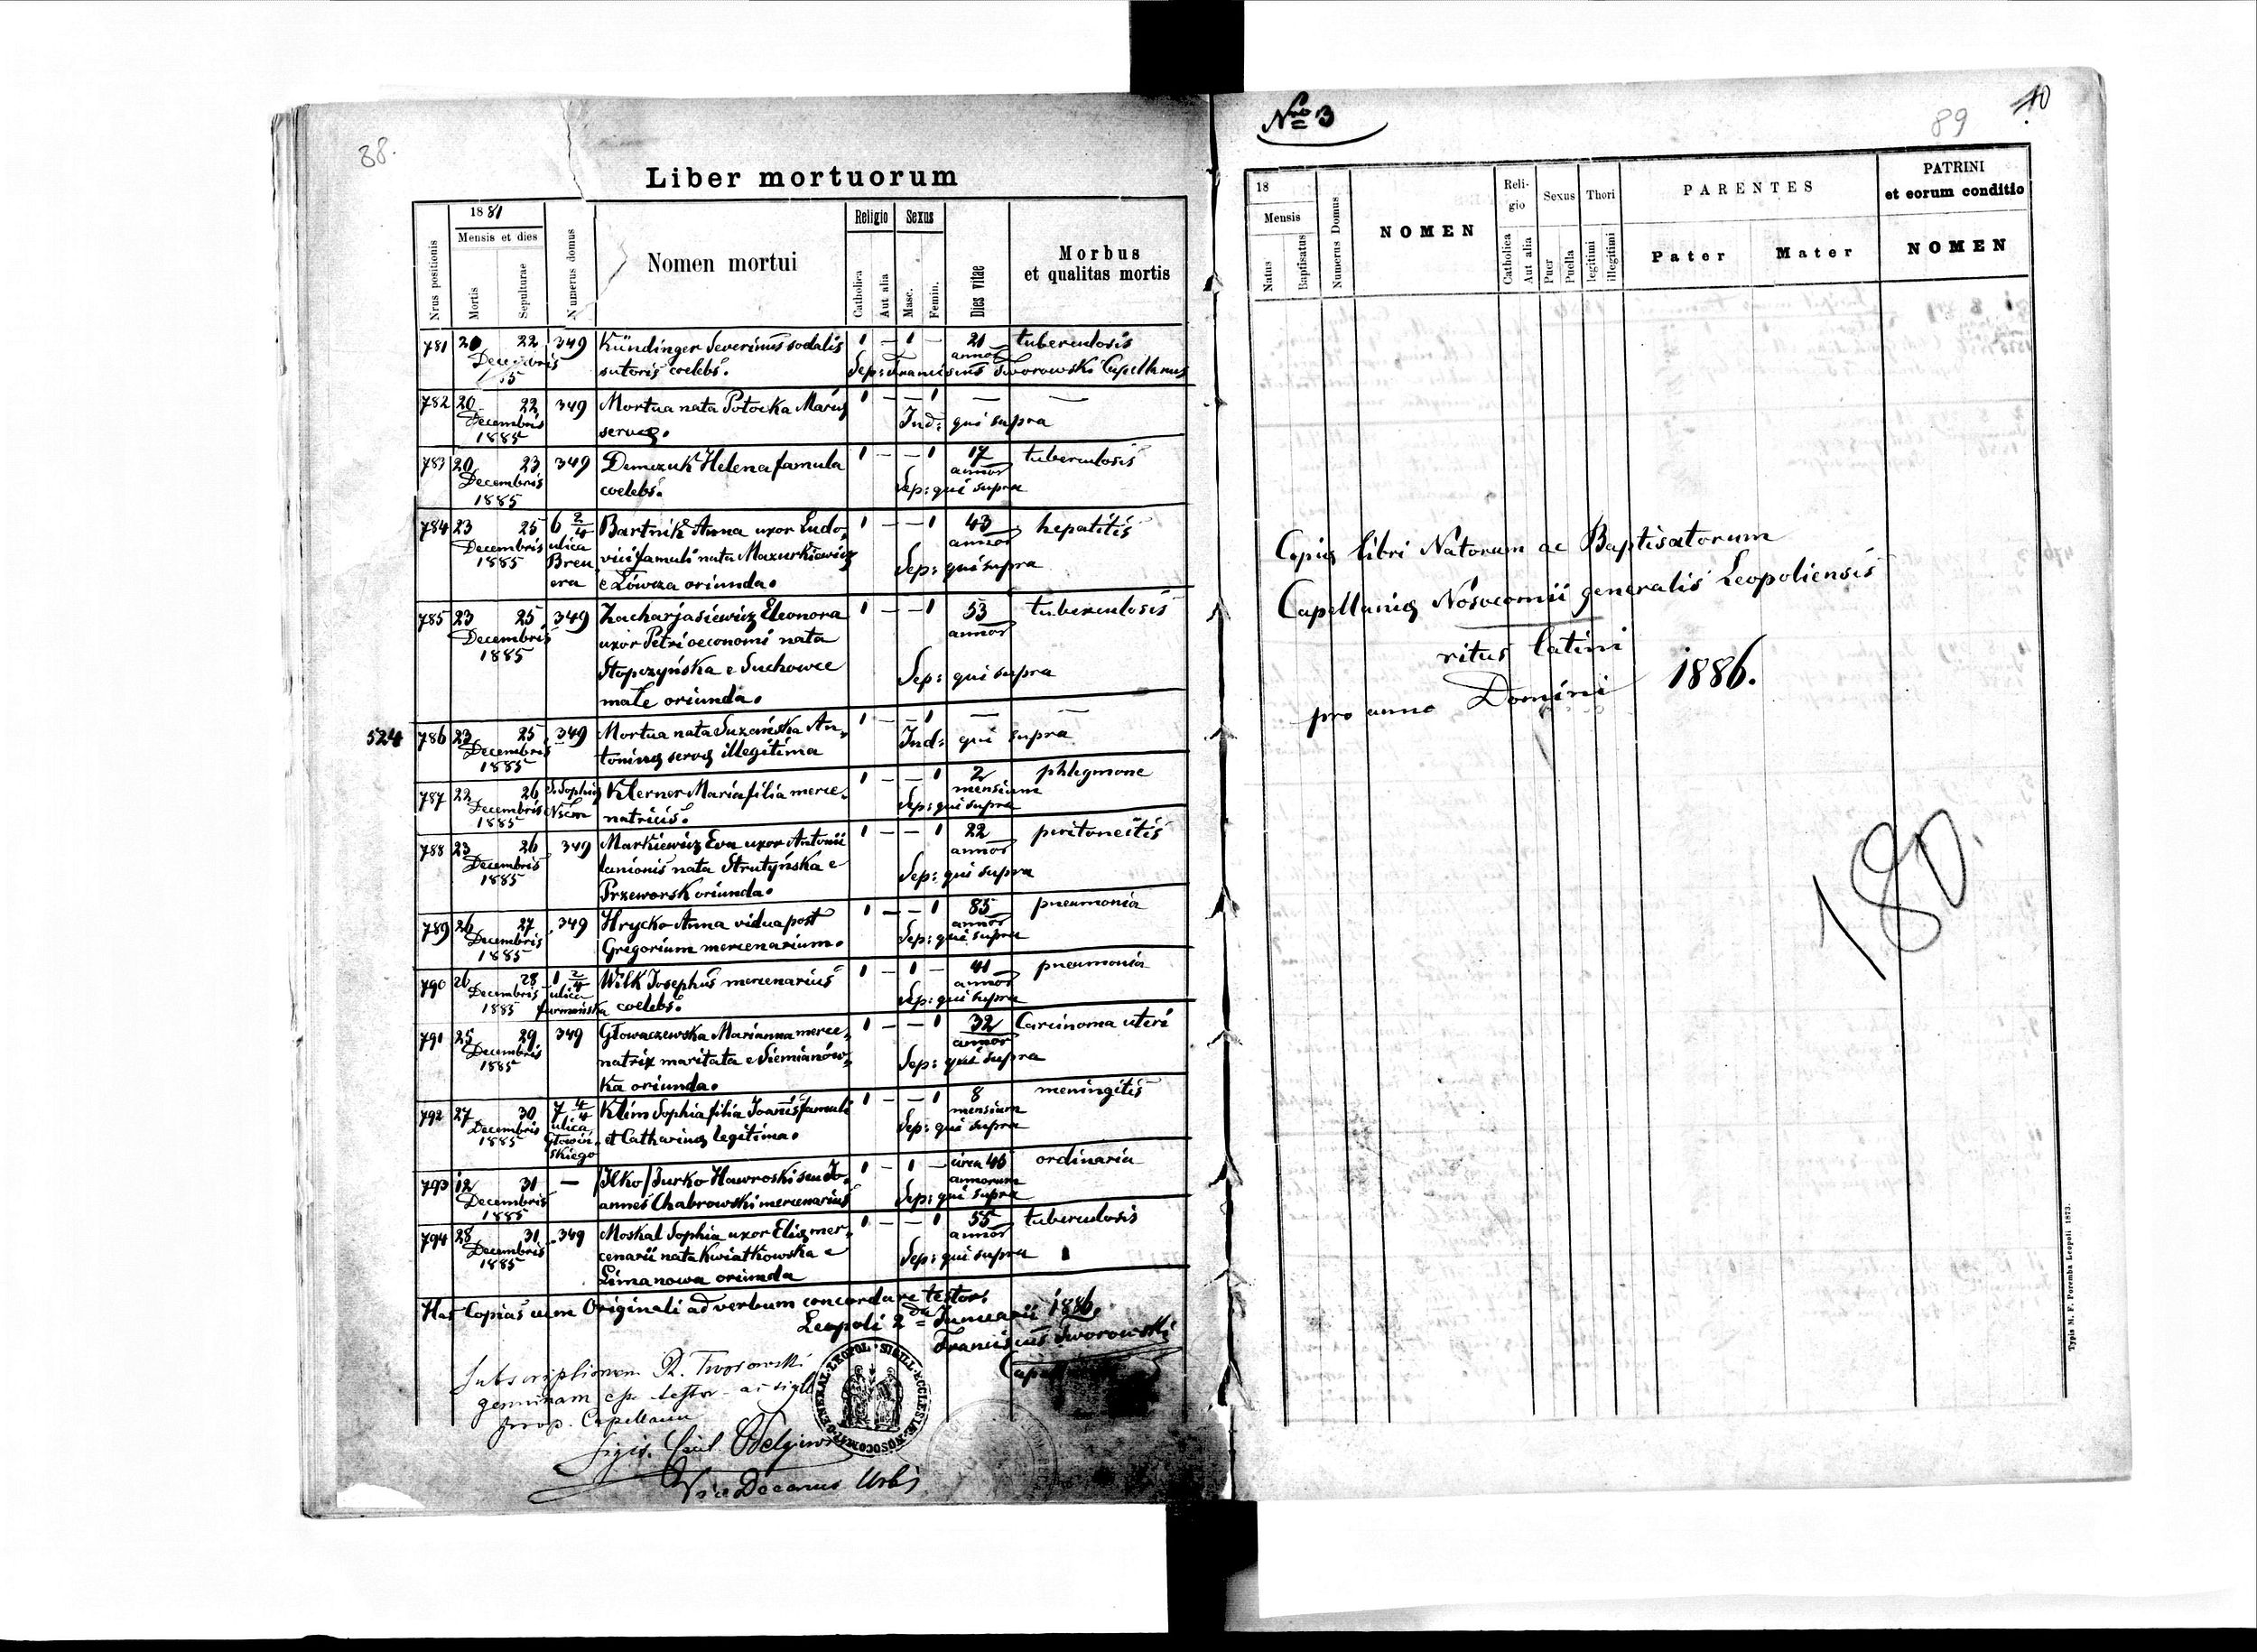 88.
Liber mortuorum
Nrus positionis
1881
Mensis et dies
Mortis
Sepulturae
Numerus domus
Nomen mortui
Religio
Catholica
Aut alia
Sexus
Masc.
Femin.
Dies vitae
Morbus
et qualitas mortis
781 20 22 349 Kündinger Severinus sodalis 1 — 1 — 21 tuberculosis
Decembris annor
85 sutoris coelebs. Sep: Franciscus Tworowski Capellanus
782 20 22 349 Mortua nata Potocka Mariæ 1 — — 1 — —
Decembris
1885 servæ. Ind: qui supra
783 20 23 349 Demczuk Helena famula 1 — — 1 17 tuberculosis
Decembris annor
1885 coelebs. Sep: qui supra
784 23 25 6 2/4 Bartnik Anna uxor Ludo- 1 — — 1 43 hepatitis
Decembris ulica vici famuli nata Mazurkiewicz annor
1885 e Łówcza oriunda. Sep: qui supra
785 23 25 349 Zacharjasiewicz Eleonora 1 — — 1 53 tuberculosis
Decembris uxor Petri oeconomi nata annor
1885 Stopczyńska e Suchowce Sep: qui supra
małe oriunda.
524 786 23 25 349 Mortua nata Suzańska An- 1 — — 1 — —
Decembris toninæ servæ illegitima Ind: qui supra
1885
787 22 26 S. Sophiæ Klerner Maria filia merce- 1 — — 1 2 phlegmone
Decembris mensium
1885 natricis. Sep: qui supra
788 23 26 349 Markiewicz Eva uxor Antonii 1 — — 1 22 peritoneitis
Decembris lanionis nata Strutyńska e annor
1885 Przeworsk oriunda. Sep: qui supra
789 26 27 349 Hrycko Anna vidua post 1 — — 1 85 pneumonia
Decembris annor
1885 Gregorium mercenarium. Sep: qui supra
790 26 28 1 2/4 Wilk Josephus mercenarius 1 — 1 — 41 pneumonia
Decembris ulica annor
1885 furmańska coelebs. Sep: qui supra
791 25 29 349 Głowaczewska Marianna merce- 1 — — 1 32 Carcinoma uteri
Decembris natrix maritata e Siemianów- annor
1885 ka oriunda. Sep: qui supra
792 27 30 7 4/4 Klim Sophia filia Joannis famuli 1 — — 1 8 meningitis
Decembris ulica mensium
1885 Głowiń- et Catharinæ legitima. Sep: qui supra
skiego
793 12 31 — /Ilko/ Jurko Hawroski seu Jo- 1 — 1 — circa 46 ordinaria
Decembris annorum
1885 annes Chabrowski mercenarius Sep: qui supra
794 28 31 349 Moskal Sophia uxor Eliæ mer- 1 — — 1 55 tuberculosis
Decembris cenarii nata Kwiatkowska e annor
1885 Limanowa oriunda Sep: qui supra
Has Copias cum Originali ad verbum concordare testor.
Leopoli 2da Januarii 1886.
Franciscus Tworowski
Subscriptionem R. Tworowski
genuinam esse testor ac sigill
prop. Capellani
Vice Decanus Urbis
SIGILL. ECCLESIÆ NOSOCOMI GENERAL. LEOPOL.
Nro 3
89
10
18
Mensis
Natus
Baptisatus
Numerus Domus
NOMEN
Reli-
gio
Catholica
Aut alia
Sexus
Puer
Puella
Thori
legitimi
illegitimi
PARENTES
Pater
Mater
PATRINI
et eorum conditio
NOMEN
Copia libri Natorum ac Baptisatorum
Capellaniæ Nosocomii generalis Leopoliensis
ritus latini
pro anno Domini 1886.
180.
Typis M. F. Poremba Leopoli 1873.